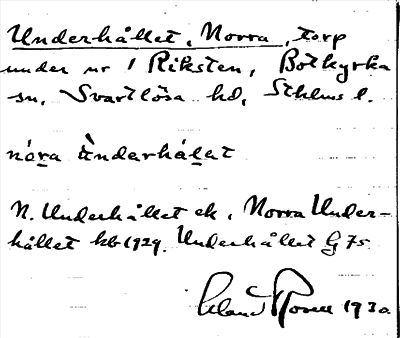 Underhållet, Norra, torp
under nr 1 Riksten, Botkyrka
sn, Svartlösa hd, Sthlms l.
nóra ùnderhålet
N. Underhållet ek, Norra Under-
hållet kb 1929. Underhållet G 75.
1930.